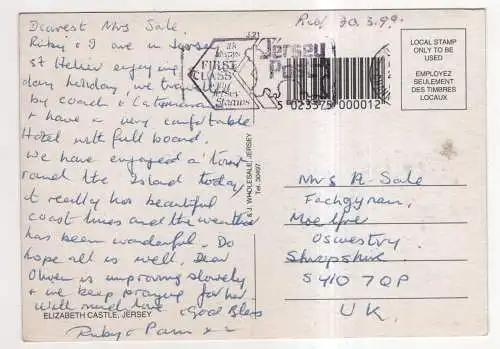 Dearest Mrs Sale.
Ruby & I are in Jersey
St Helier enjoying a
day holiday, we travelled
by coach & Catamaran
& have a very comfortable
Hotel with full board.
We have engaged a 'tour'
round the Island today
it really has beautiful
coast lines and the weather
has been wonderful. Do
hope all is well. Dear
Oliver is improving slowly
& we keep praying for her
With much love & God Bless
Ruby & Pam x x
ELIZABETH CASTLE, JERSEY
& J. WHOLESALE, JERSEY
Tel. 30497.
30.3.99.
321
FIRST
CLASS
Jersey
Stamps
Jersey
Post
5 023375 000012
LOCAL STAMP
ONLY TO BE
USED
EMPLOYEZ
SEULEMENT
DES TIMBRES
LOCAUX
Mrs A. Sale
Moelfre
Oswestry
Shropshire
SY10 7QP
U.K.